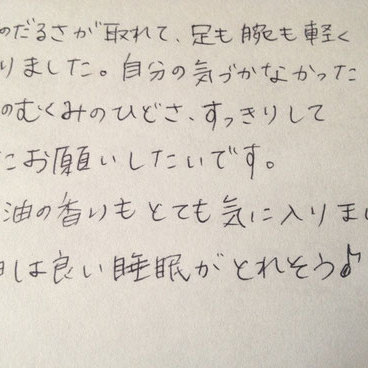 のだるさが取れて、足も腕も軽く
りました。自分の気づかなかった
のむくみのひどさ、すっきりして
たお願いしたいです。
油の香りもとても気に入りまし
は良い睡眠がとれそう♪